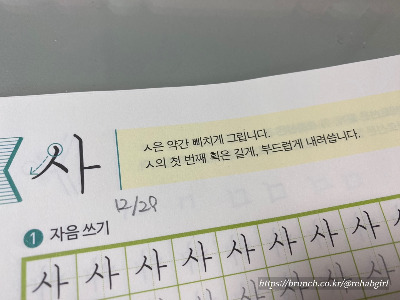 사
ㅅ은 약간 삐치게 그립니다.
ㅅ의 첫 번째 획은 길게, 부드럽게 내려씁니다.
12/29
1 자음 쓰기
사 사 사 사 사 사 사 사 사
https://brunch.co.kr/@rehabgirl